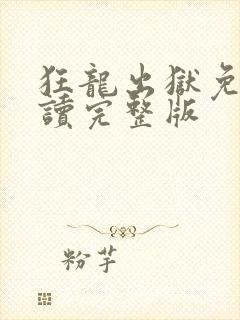 狂龍出獄免
讀完整版
粉芋